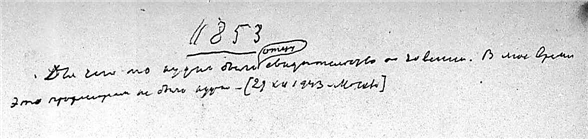 1853
отцу
Для чего то нужно было свидетельство о говении. В мое время
это профессорам не было нужно – [29 XII 1943 Москва]